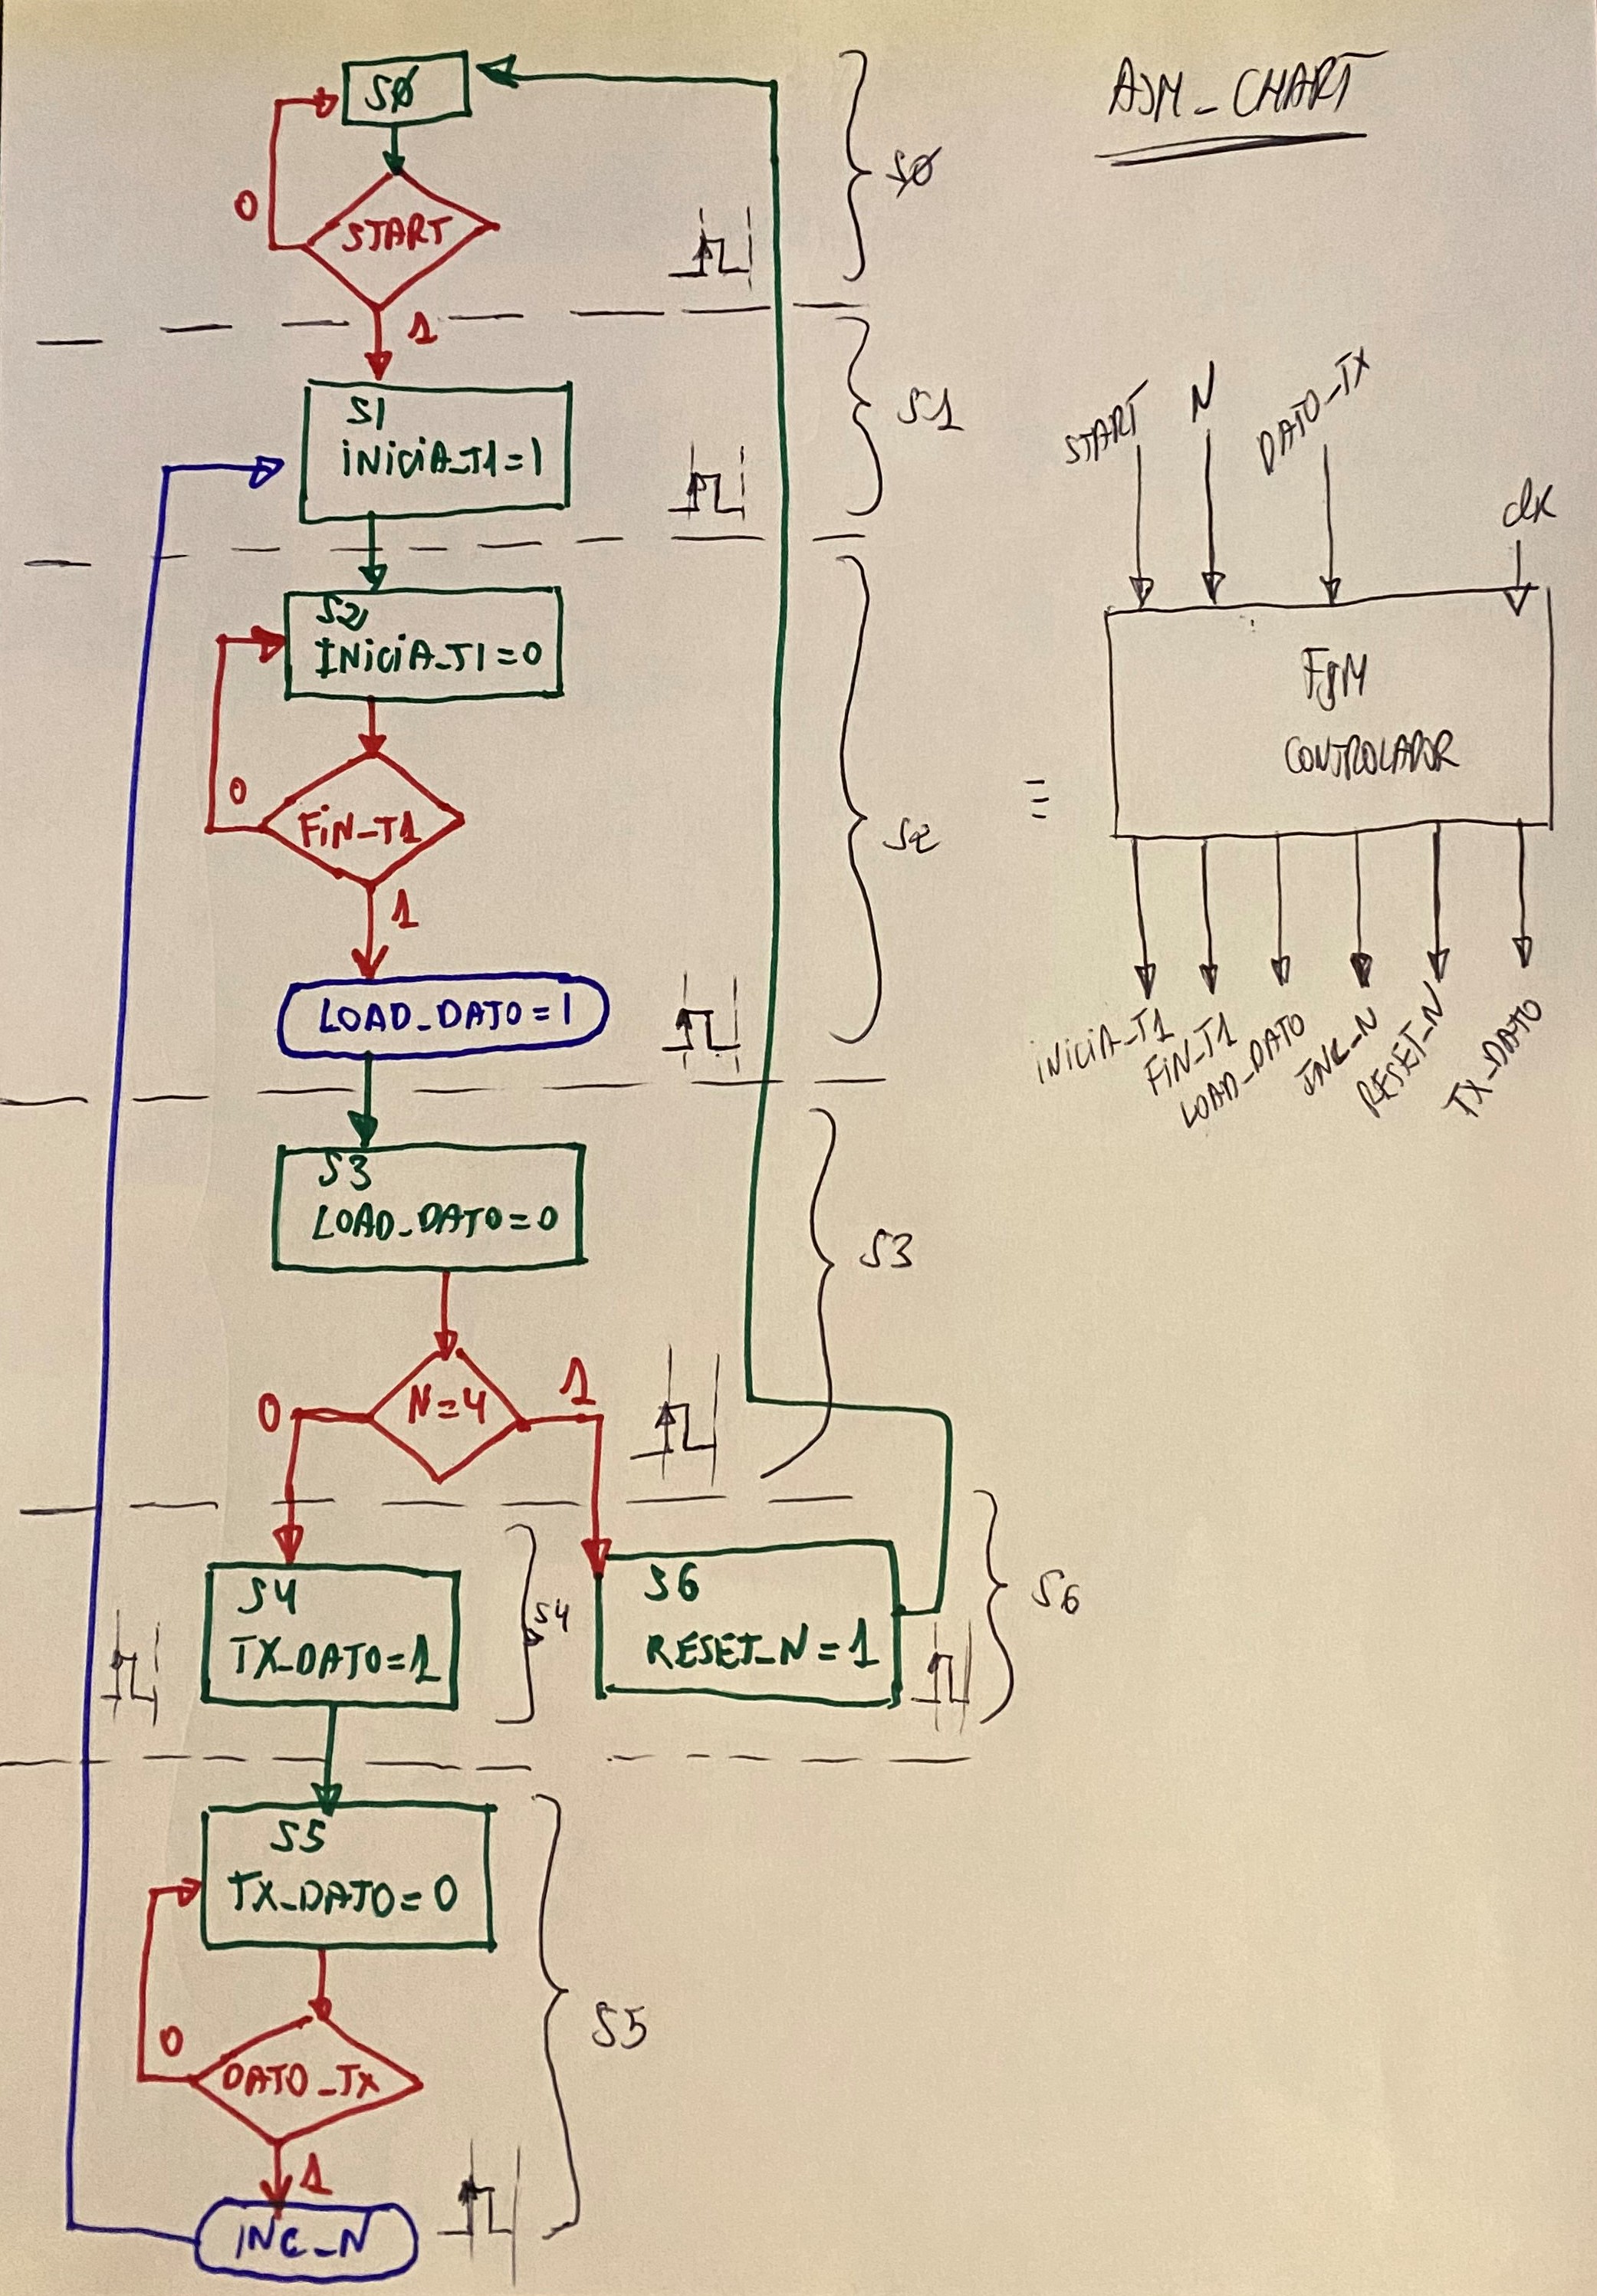 ASM_CHART
SØ
SØ
START
0
1
S1
INICIA_T1=1
S1
S2
INICIA_T1=0
FIN_T1
0
1
LOAD_DATO=1
S2
S3
LOAD_DATO=0
N=4
0
1
S3
S4
TX_DATO=1
S4
S6
RESET_N=1
S6
S5
TX_DATO=0
DATO_TX
0
1
INC_N
S5
START
N
DATO_TX
clk
FSM
CONTROLADOR
≡
INICIA_T1
FIN_T1
LOAD_DATO
INC_N
RESET_N
TX_DATO